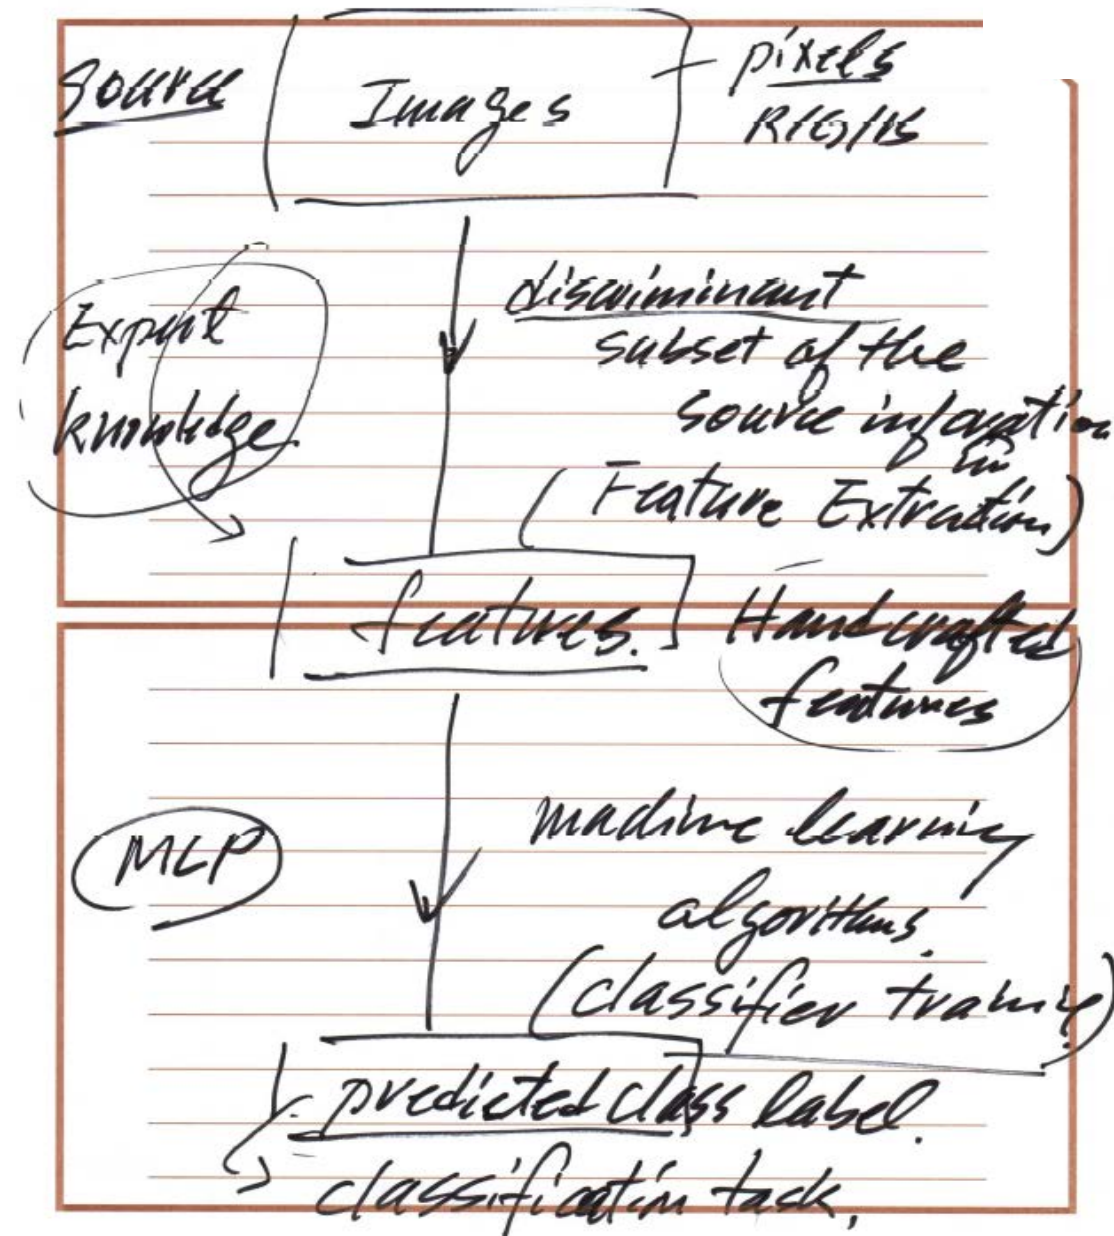 Source
Images
pixels
R/G/B
Expert
knowledge
discriminant
subset of the
source information
(Feature Extraction)
features.
Handcrafted
features
MLP
machine learning
algorithms.
(classifier training)
predicted class label.
classification task,